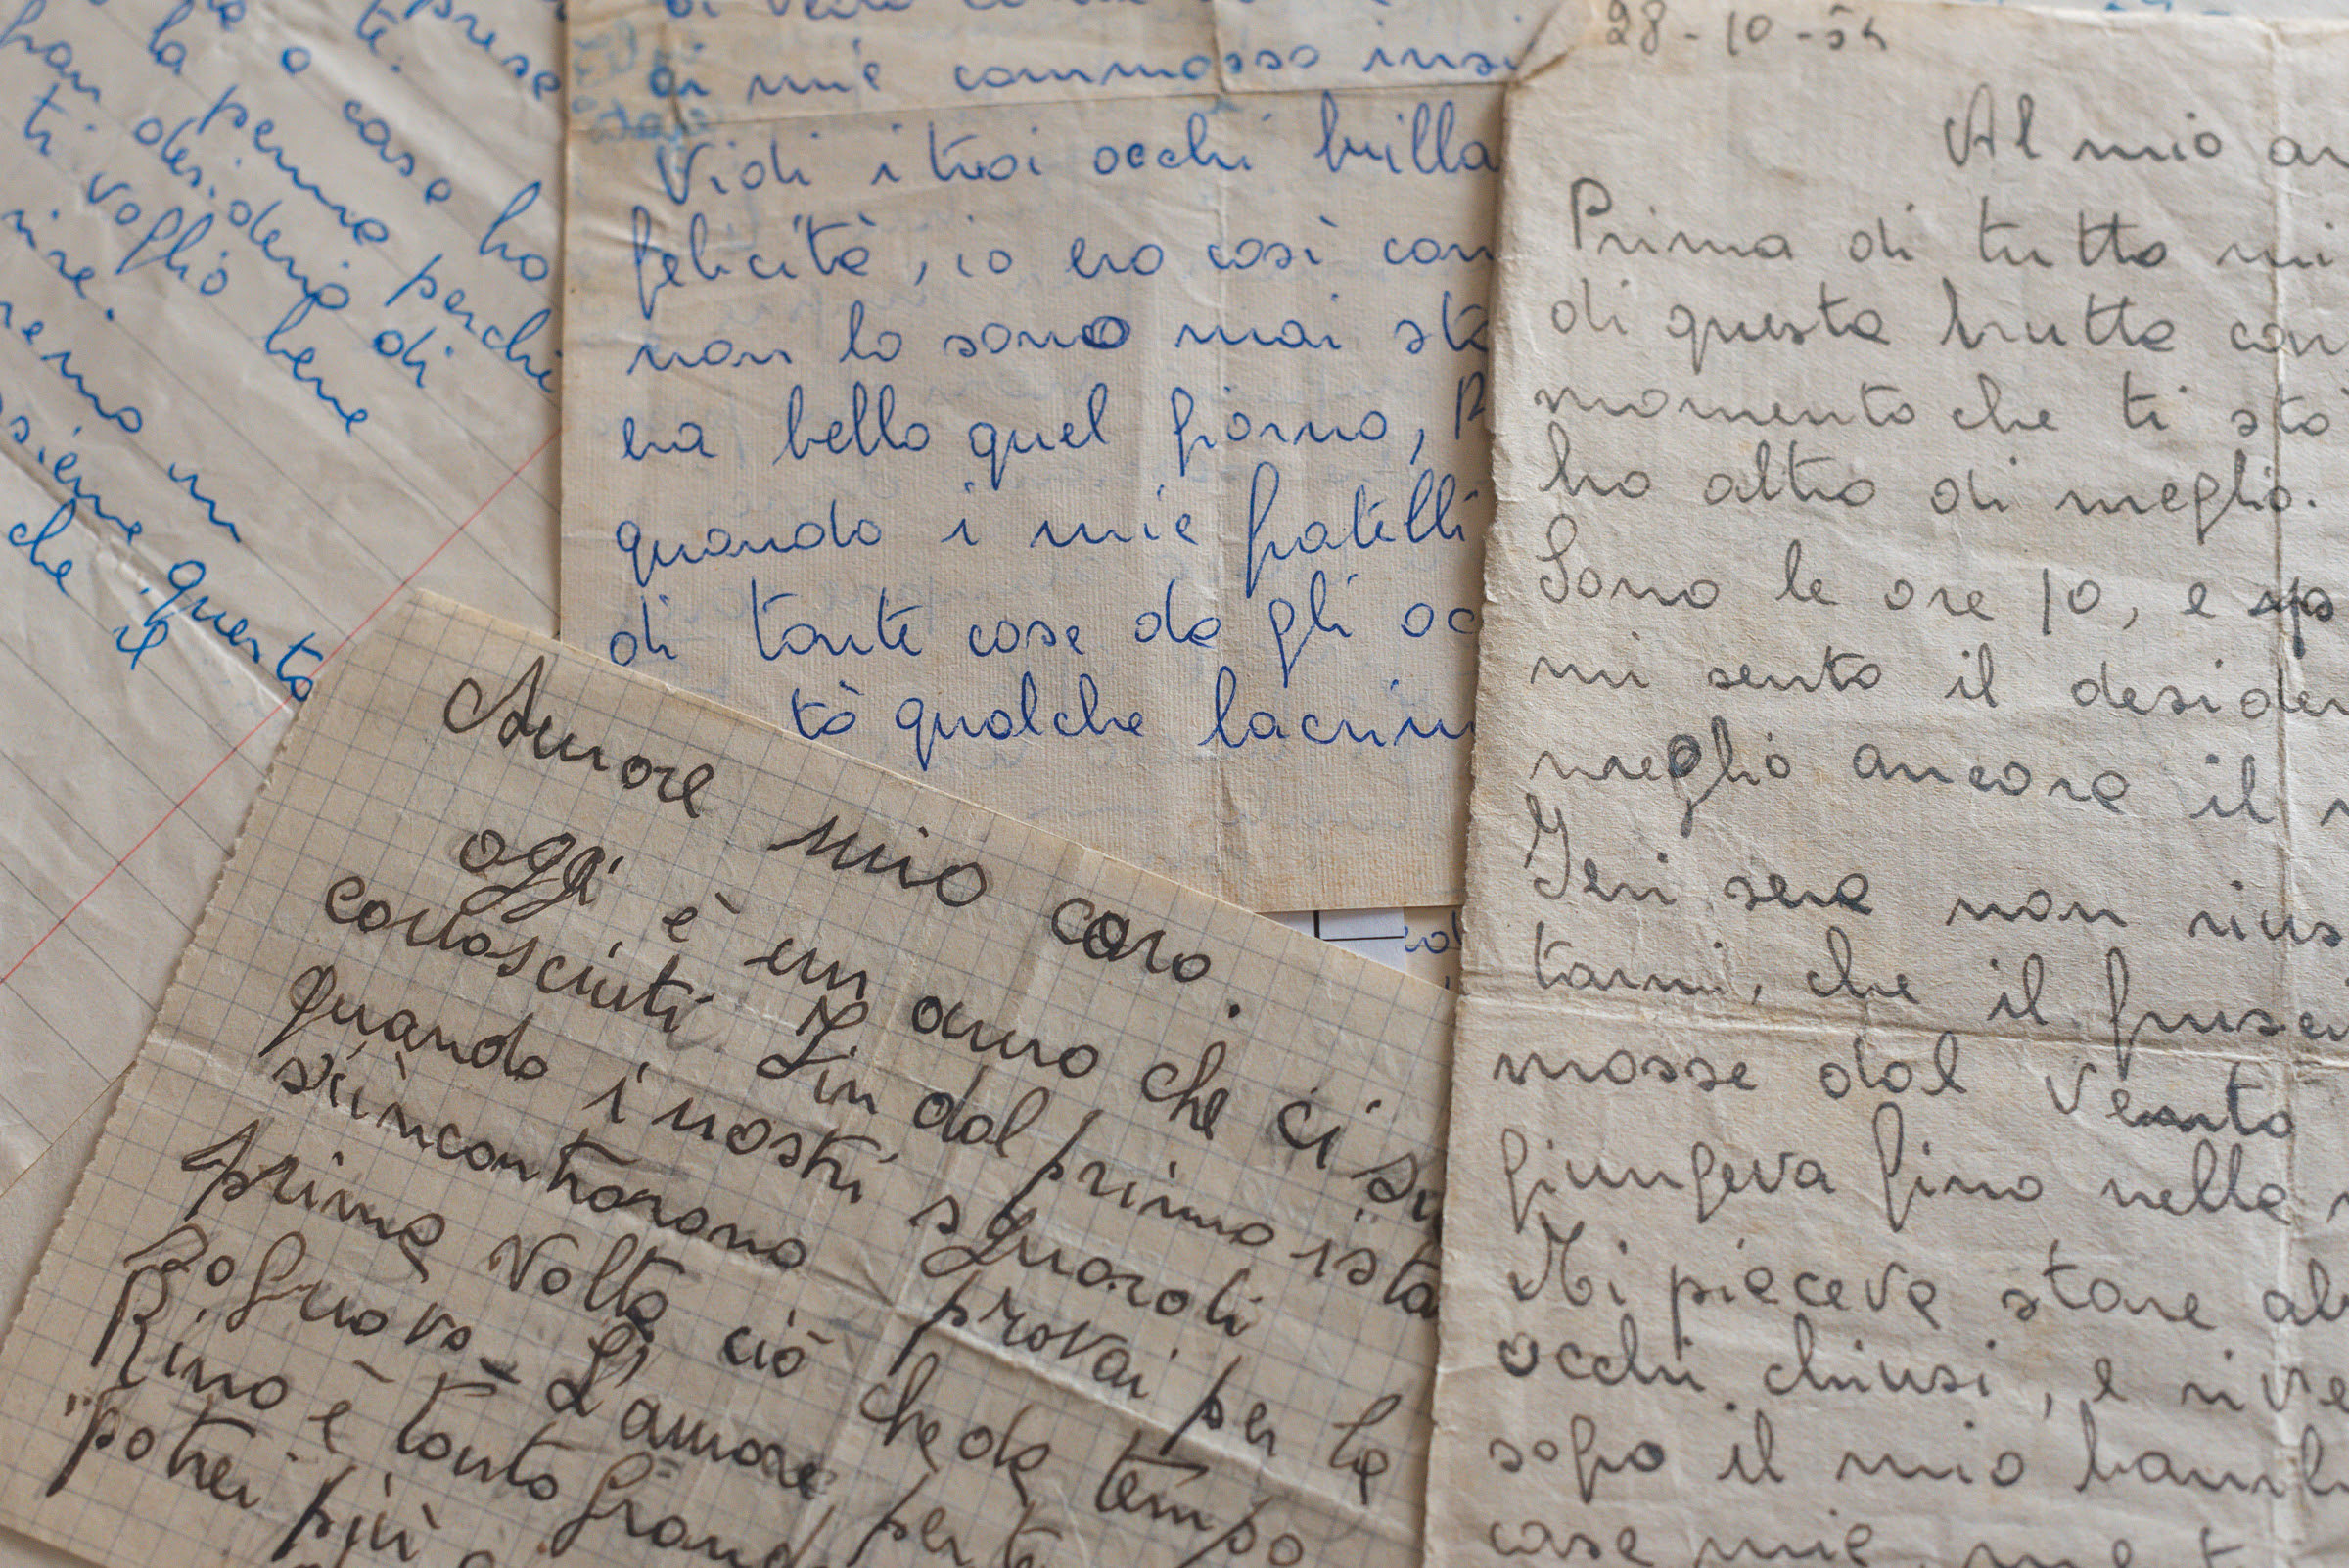 prese
te.
a casa ho
la penna perchè
gran desiderio di
ti voglio bene
in
questo
che il
di mie commosso
Vidi i tuoi occhi brilla
felicità, io ero così com
non lo sono mai sta
era bello quel giorno, R
quando i mie fratelli
di tante cose da gli oc
tò qualche lacrim
Amore mio caro.
oggi è un anno che ci si
conosciuti Fin dal primo ista
quando i nostri sguardi
s'incontrarono provai per la
prima volta ciò che da tempo
sognavo - L'amore per te
Rino è tanto grand
potrei più
28-10-54
Al mio am
Prima di tutto mi
di questa brutta car
momento che ti sto
ho altro di meglio.
Sono le ore 10, e
mi sento il desider
meglio ancora il
Ieri sera non rius
tarmi, che il fruscu
mosse dal vento
giungeva fino nella
Mi piaceva stare al
occhi chiusi, e rive
sogno il mio bamb
case mie